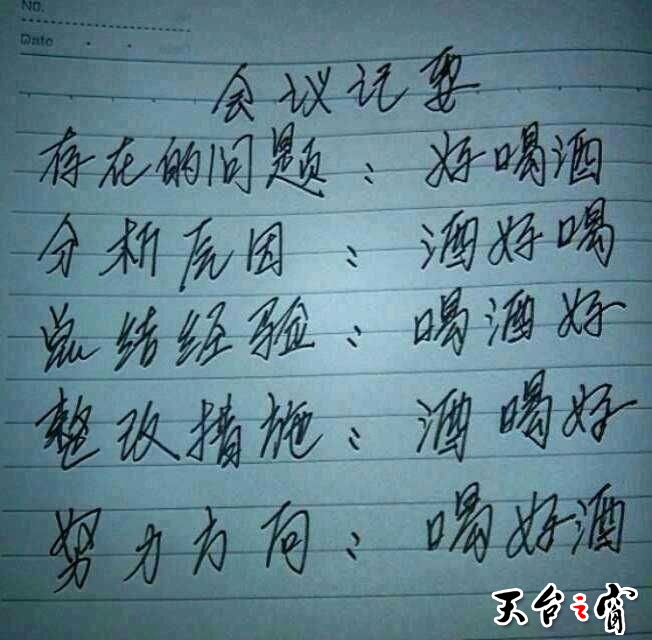 No.
Date
会议记要
存在的问题：好喝酒
分析原因：酒好喝
总结经验：喝酒好
整改措施：酒喝好
努力方向：喝好酒
天台之窗